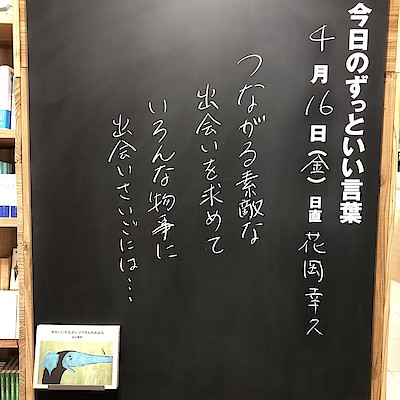 今日のずっといい言葉
4月16日(金)日直 花岡幸久
つながる素敵な
出会いを求めて
いろんな物事に
出会いさいごには…